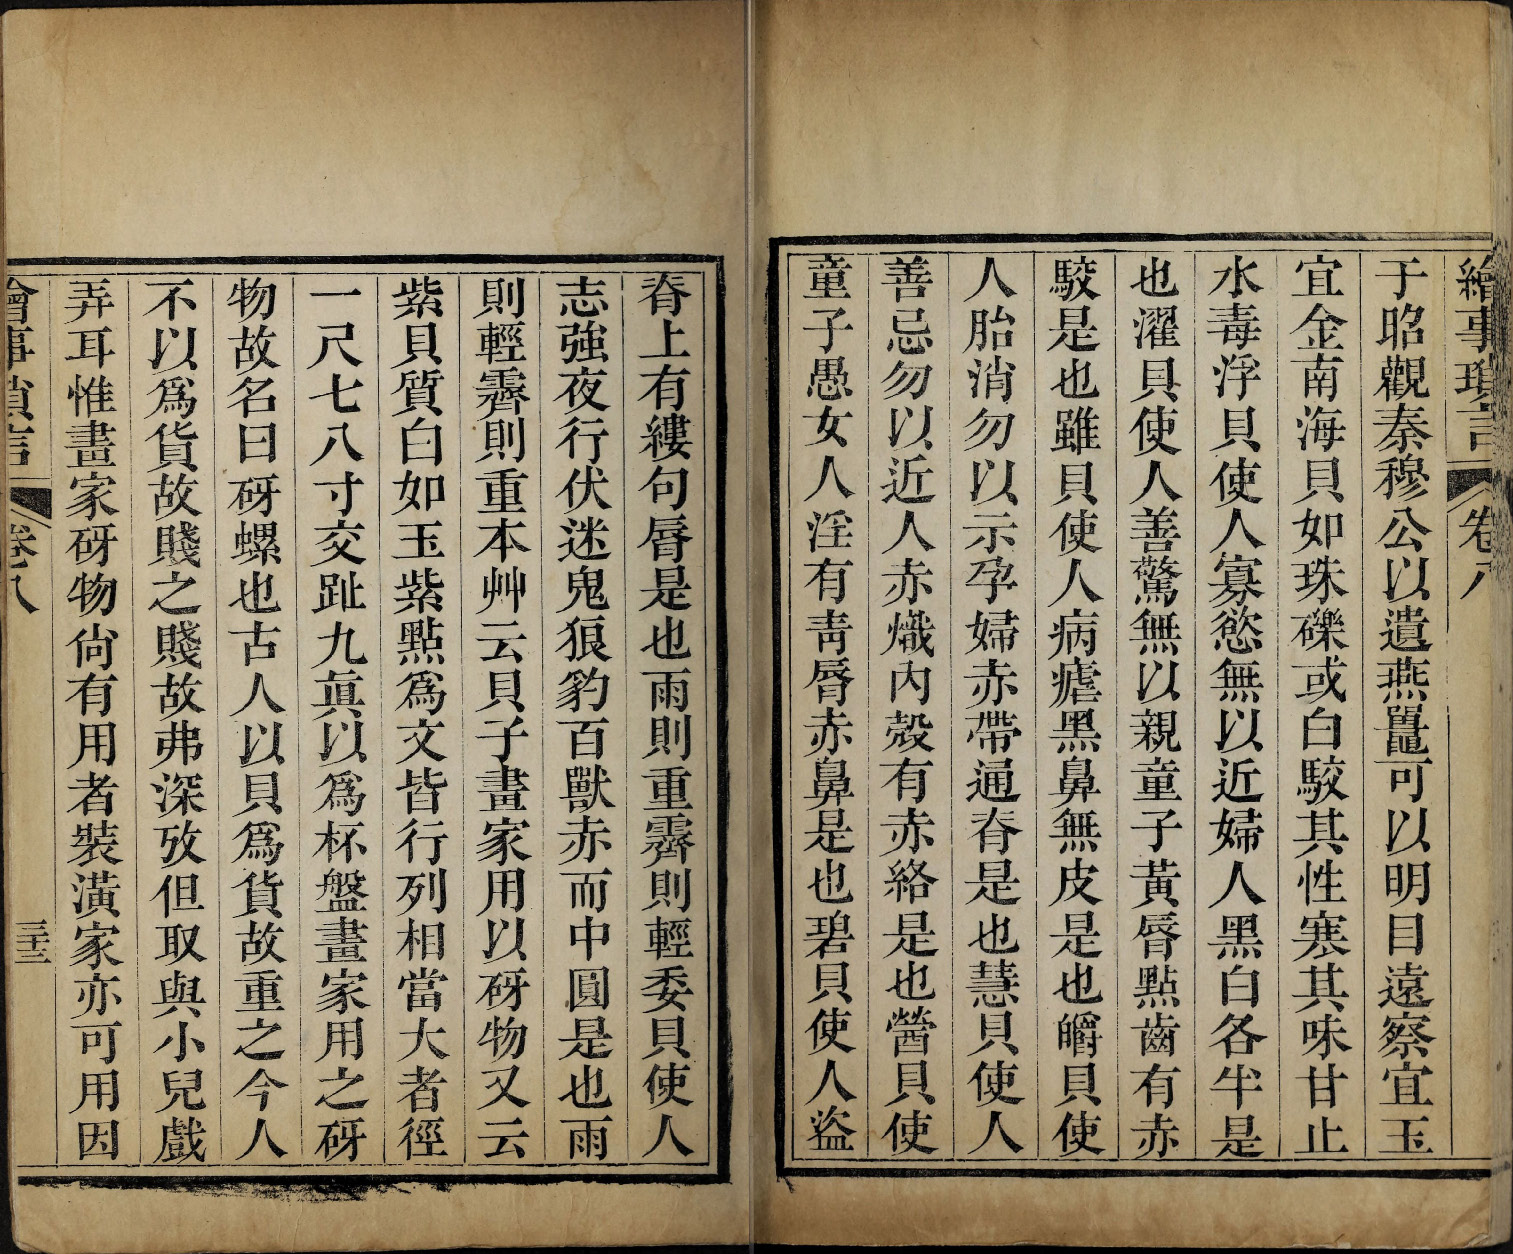 繪事瑣言 卷八
于昭觀秦穆公以遺燕鼂可以明目遠察宜玉
宜金南海貝如珠礫或白駮其性寒其味甘止
水毒浮貝使人寡慾無以近婦人黑白各半是
也濯貝使人善驚無以親童子黃脣點齒有赤
駮是也雖貝使人病瘧黑鼻無皮是也皭貝使
人胎消勿以示孕婦赤帶通脊是也慧貝使人
善忌勿以近人赤熾內殼有赤絡是也醟貝使
童子愚女人淫有靑脣赤鼻是也碧貝使人盜
脊上有縷句脣是也雨則重霽則輕委貝使人
志強夜行伏迷鬼狼豹百獸赤而中圓是也雨
則輕霽則重本艸云貝子畫家用以砑物又云
紫貝質白如玉紫點爲文皆行列相當大者徑
一尺七八寸交趾九眞以爲杯盤畫家用之砑
物故名曰砑螺也古人以貝爲貨故重之今人
不以爲貨故賤之賤故弗深攷但取與小兒戲
弄耳惟畫家砑物尙有用者裝潢家亦可用因
繪事瑣言 卷八 三十三